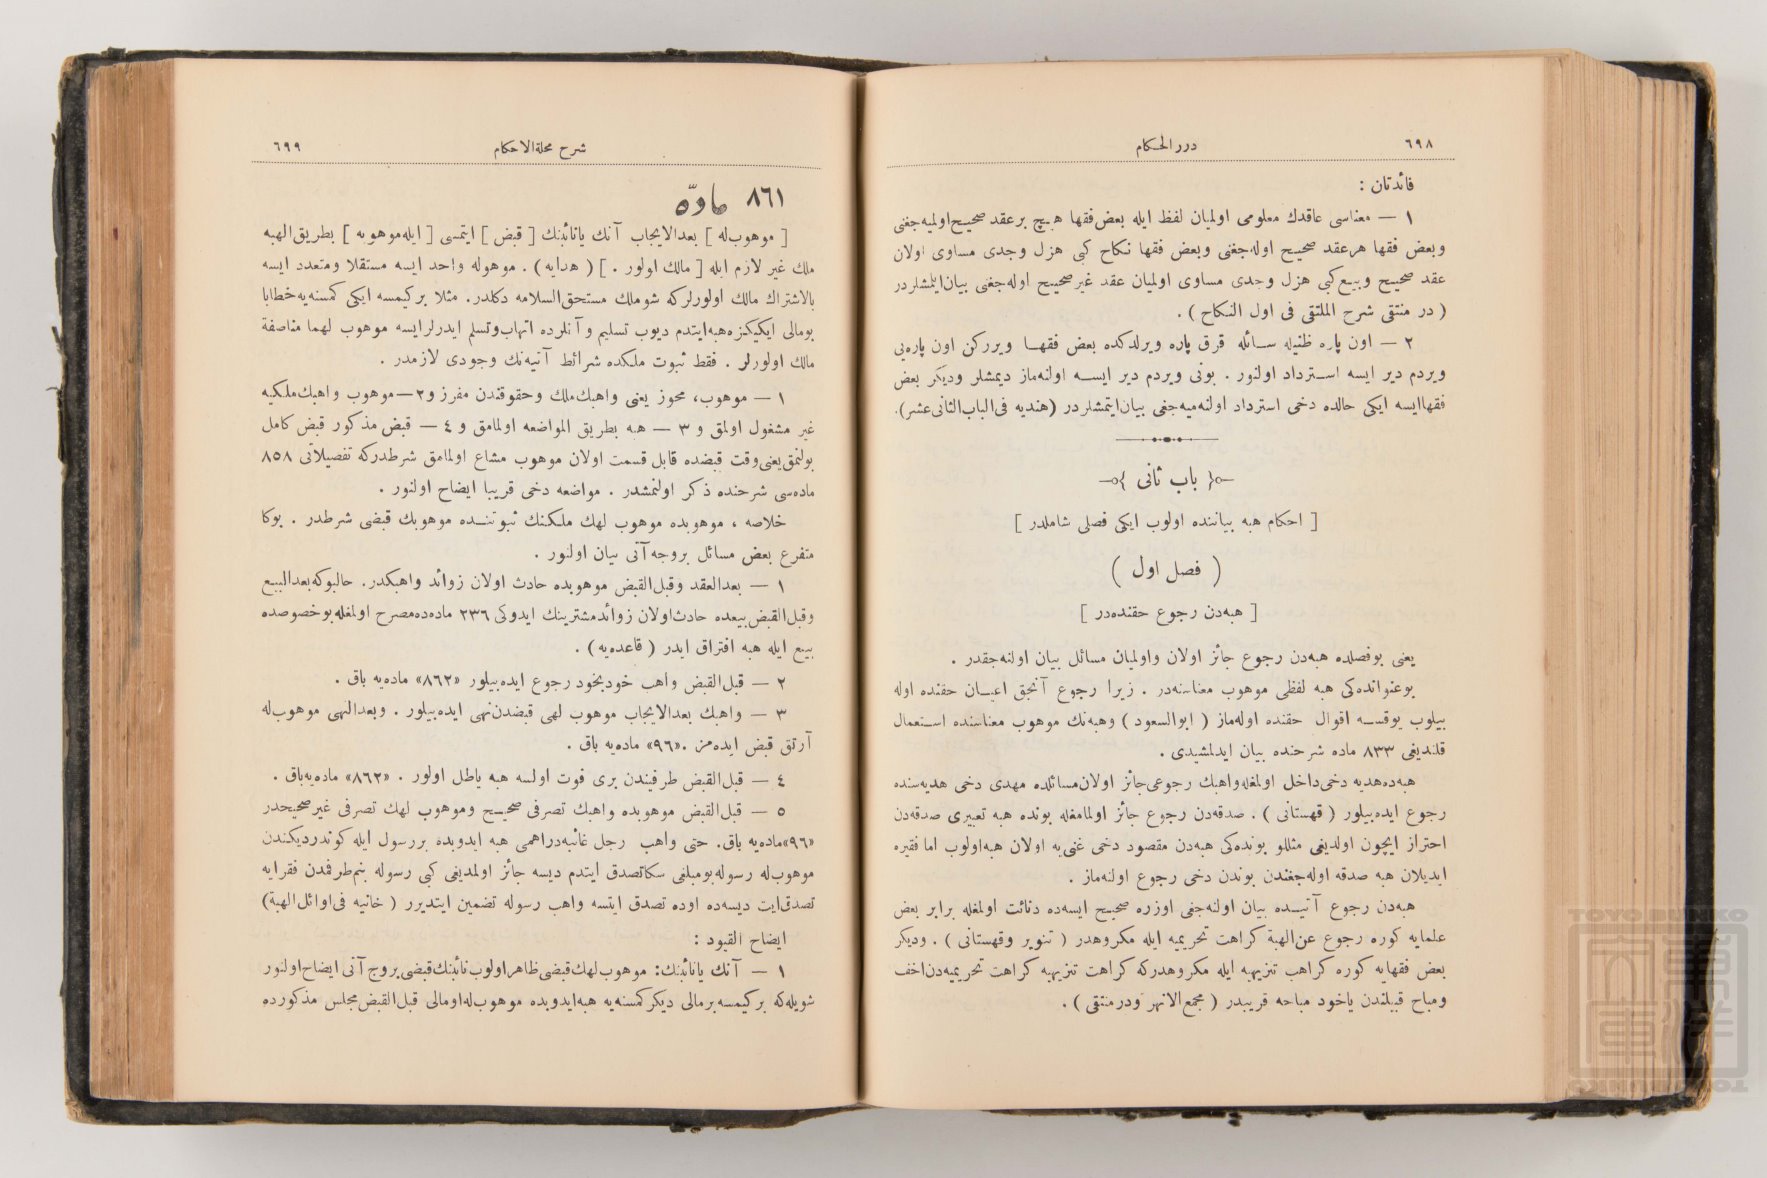 ٦٩٨
درر الحكام
فائدتان :
١ — معناسی عاقدك معلومی اولمیان لفظ ایله بعض فقها هیچ بر عقد صحیح اولمیه‌جغنی
وبعض فقها هر عقد صحیح اوله‌جغنی وبعض فقها نكاح كبی هزل وجدی مساوی اولان
عقد صحیح وبیع كبی هزل وجدی مساوی اولمیان عقد غیر صحیح اوله‌جغنی بیان ایتمشلردر
( در منتقی شرح الملتقی فی اول النكاح ) .
٢ — اون پاره ظنیله سائله قرق پاره ویرلدكده بعض فقها ویرركن اون پاره‌یی
ویردم دیر ایسه استرداد اولنور . بونی ویردم دیر ایسه اولنه‌ماز دیمشلر ودیكر بعض
فقها ایسه ایكی حالده دخی استرداد اولنه‌میه‌جغی بیان ایتمشلردر (هندیه فی الباب الثانی عشر).
﴿ باب ثانی ﴾
[ احكام هبه بیاننده اولوب ایكی فصلی شاملدر ]
( فصل اول )
[ هبه‌دن رجوع حقنده‌در ]
یعنی بو فصلده هبه‌دن رجوع جائز اولان واولمیان مسائل بیان اولنه‌جقدر .
بو عنوانده‌كی هبه لفظی موهوب معناسنه‌در . زیرا رجوع آنجق اعیان حقنده اوله
بیلوب یوقسه اقوال حقنده اوله‌ماز ( ابو السعود ) وهبه‌نك موهوب معناسنده استعمال
قلندیغی ٨٣٣ ماده شرحنده بیان ایدلمشیدی .
هبه‌ده هدیه دخی داخل اولمغله واهبك رجوعی جائز اولان مسائلده مهدی دخی هدیه‌سنده
رجوع ایده‌بیلور ( قهستانی ) . صدقه‌دن رجوع جائز اولمامغله بونده هبه تعبیری صدقه‌دن
احتراز ایچون اولدیغی مثللو بونده‌كی هبه‌دن مقصود دخی غنی‌یه اولان هبه اولوب اما فقیره
ایدیلان هبه صدقه اوله‌جغندن بوندن دخی رجوع اولنه‌ماز .
هبه‌دن رجوع آتیده بیان اولنه‌جغی اوزره صحیح ایسه‌ده دنائت اولمغله برابر بعض
علمایه كوره رجوع عن الهبة كراهت تحریمیه ایله مكروهدر ( تنویر وقهستانی ) . ودیكر
بعض فقهایه كوره كراهت تنزیهیه ایله مكروهدركه كراهت تنزیهیه كراهت تحریمیه‌دن اخف
ومباح قبیلندن یاخود مباحه قریبدر ( مجمع الانهر ودر منتقی ) .
شرح مجلة الاحكام
٦٩٩
٨٦١ مادّه
[ موهوب له ] بعد الایجاب آنك یا نائبنك [ قبض ] ایتمسی [ ایله موهوبه ] بطریق الهبه
ملك غیر لازم ایله [ مالك اولور . ] ( هدایه ) . موهوله واحد ایسه مستقلا ومتعدد ایسه
بالاشتراك مالك اولورلركه شو ملك مستحق السلامه دكلدر. مثلا بر كیمسه ایكی كمسنه‌یه خطابا
بو مالی ایكیكزه هبه ایتدم دیوب تسلیم و آنلرده اتهاب وتسلم ایدرلر ایسه موهوب لهما مناصفة
مالك اولورلر . فقط ثبوت ملكده شرائط آتیه‌نك وجودی لازمدر .
١ — موهوب، محوز یعنی واهبك ملك وحقوقندن مفرز و٢ — موهوب واهبك ملكیه
غیر مشغول اولمق و ٣ — هبه بطریق المواضعه اولمامق و ٤ — قبض مذكور قبض كامل
بولنمق یعنی وقت قبضده قابل قسمت اولان موهوب مشاع اولمامق شرطدركه تفصیلاتی ٨٥٨
ماده‌سی شرحنده ذكر اولنمشدر . مواضعه دخی قریبا ایضاح اولنور .
خلاصه ، موهوبده موهوب لهك ملكنك ثبوتنده موهوبك قبضی شرطدر . بوكا
متفرع بعض مسائل بروجه آتی بیان اولنور .
١ — بعد العقد وقبل القبض موهوبده حادث اولان زوائد واهبكدر. حالبوكه بعد البیع
وقبل القبض بیعده حادث اولان زوائد مشترینك ایدوكی ٢٣٦ ماده‌ده مصرح اولمغله بو خصوصده
بیع ایله هبه افتراق ایدر ( قاعدیه ) .
٢ — قبل القبض واهب خود بخود رجوع ایده‌بیلور «٨٦٢» ماده‌یه باق .
٣ — واهبك بعد الایجاب موهوب لهی قبضدن نهی ایده‌بیلور . وبعد النهی موهوب له
آرتق قبض ایده‌مز .«٩٦» ماده‌یه باق .
٤ — قبل القبض طرفیندن بری فوت اولسه هبه باطل اولور . «٨٦٢» ماده‌یه باق .
٥ — قبل القبض موهوبده واهبك تصرفی صحیح وموهوب لهك تصرفی غیر صحیحدر
«٩٦» ماده‌یه باق. حتی واهب رجل غائبه دراهمی هبه ایدوبده بر رسول ایله كوندردیكندن
موهوب له رسوله بو مبلغی سكا تصدق ایتدم دیسه جائز اولمدیغی كبی رسوله بنم طرفمدن فقرایه
تصدق ایت دیسه‌ده اوده تصدق ایتسه واهب رسوله تضمین ایتدیرر ( خانیه فی اوائل الهبة)
ایضاح القیود :
١ — آنك یا نائبنك: موهوب لهك قبضی ظاهر اولوب نائبنك قبضی بروج آتی ایضاح اولنور
شویله‌كه بر كیمسه بر مالی دیكر كمسنه‌یه هبه ایدوبده موهوب له او مالی قبل القبض مجلس مذكورده
TOYO BUNKO